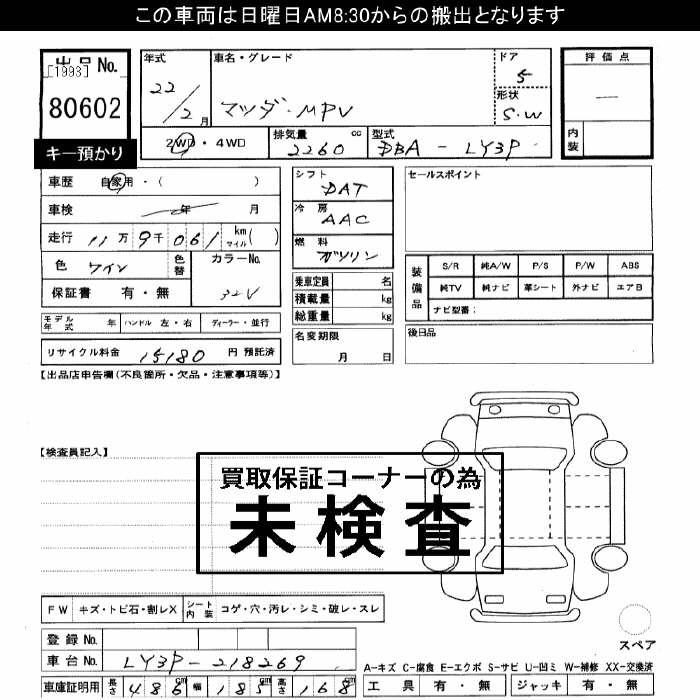 この車両は日曜日AM8:30からの搬出となります
出品No.
[1993]
80602
キー預かり
年式
22/2月
車名・グレード
マツダ・MPV
ドア
5
形状
S.W
評価点
―
内装
2WD・4WD
排気量 cc
2260
型式
DBA-LY3P
車歴 自家用・( )
車検 年 月
走行 11万9千061 km マイル ( )
色 ワイン
色替
カラーNo.
32V
保証書 有・無
シフト
DAT
冷房
AAC
燃料
ガソリン
乗車定員 名
積載量 kg
総重量 kg
セールスポイント
装備品
S/R 純A/W P/S P/W ABS
純TV 純ナビ 革シート 外ナビ エアB
ナビ型番:
モデル年式 年 ハンドル 左・右 ディーラー・並行
リサイクル料金 15180 円 預託済
名変期限
月 日
後日品
【出品店申告欄(不良箇所・欠品・注意事項等)】
【検査員記入】
買取保証コーナーの為
未検査
FW キズ・トビ石・割レX シート内装 コゲ・穴・汚レ・シミ・破レ・スレ
登録No.
車台No. LY3P-218269
車庫証明用 長さ 486cm 幅 185cm 高さ 168cm
スペア
A-キズ C-腐食 E-エクボ S-サビ U-凹ミ W-補修 XX-交換済
工具 有・無 ジャッキ 有・無